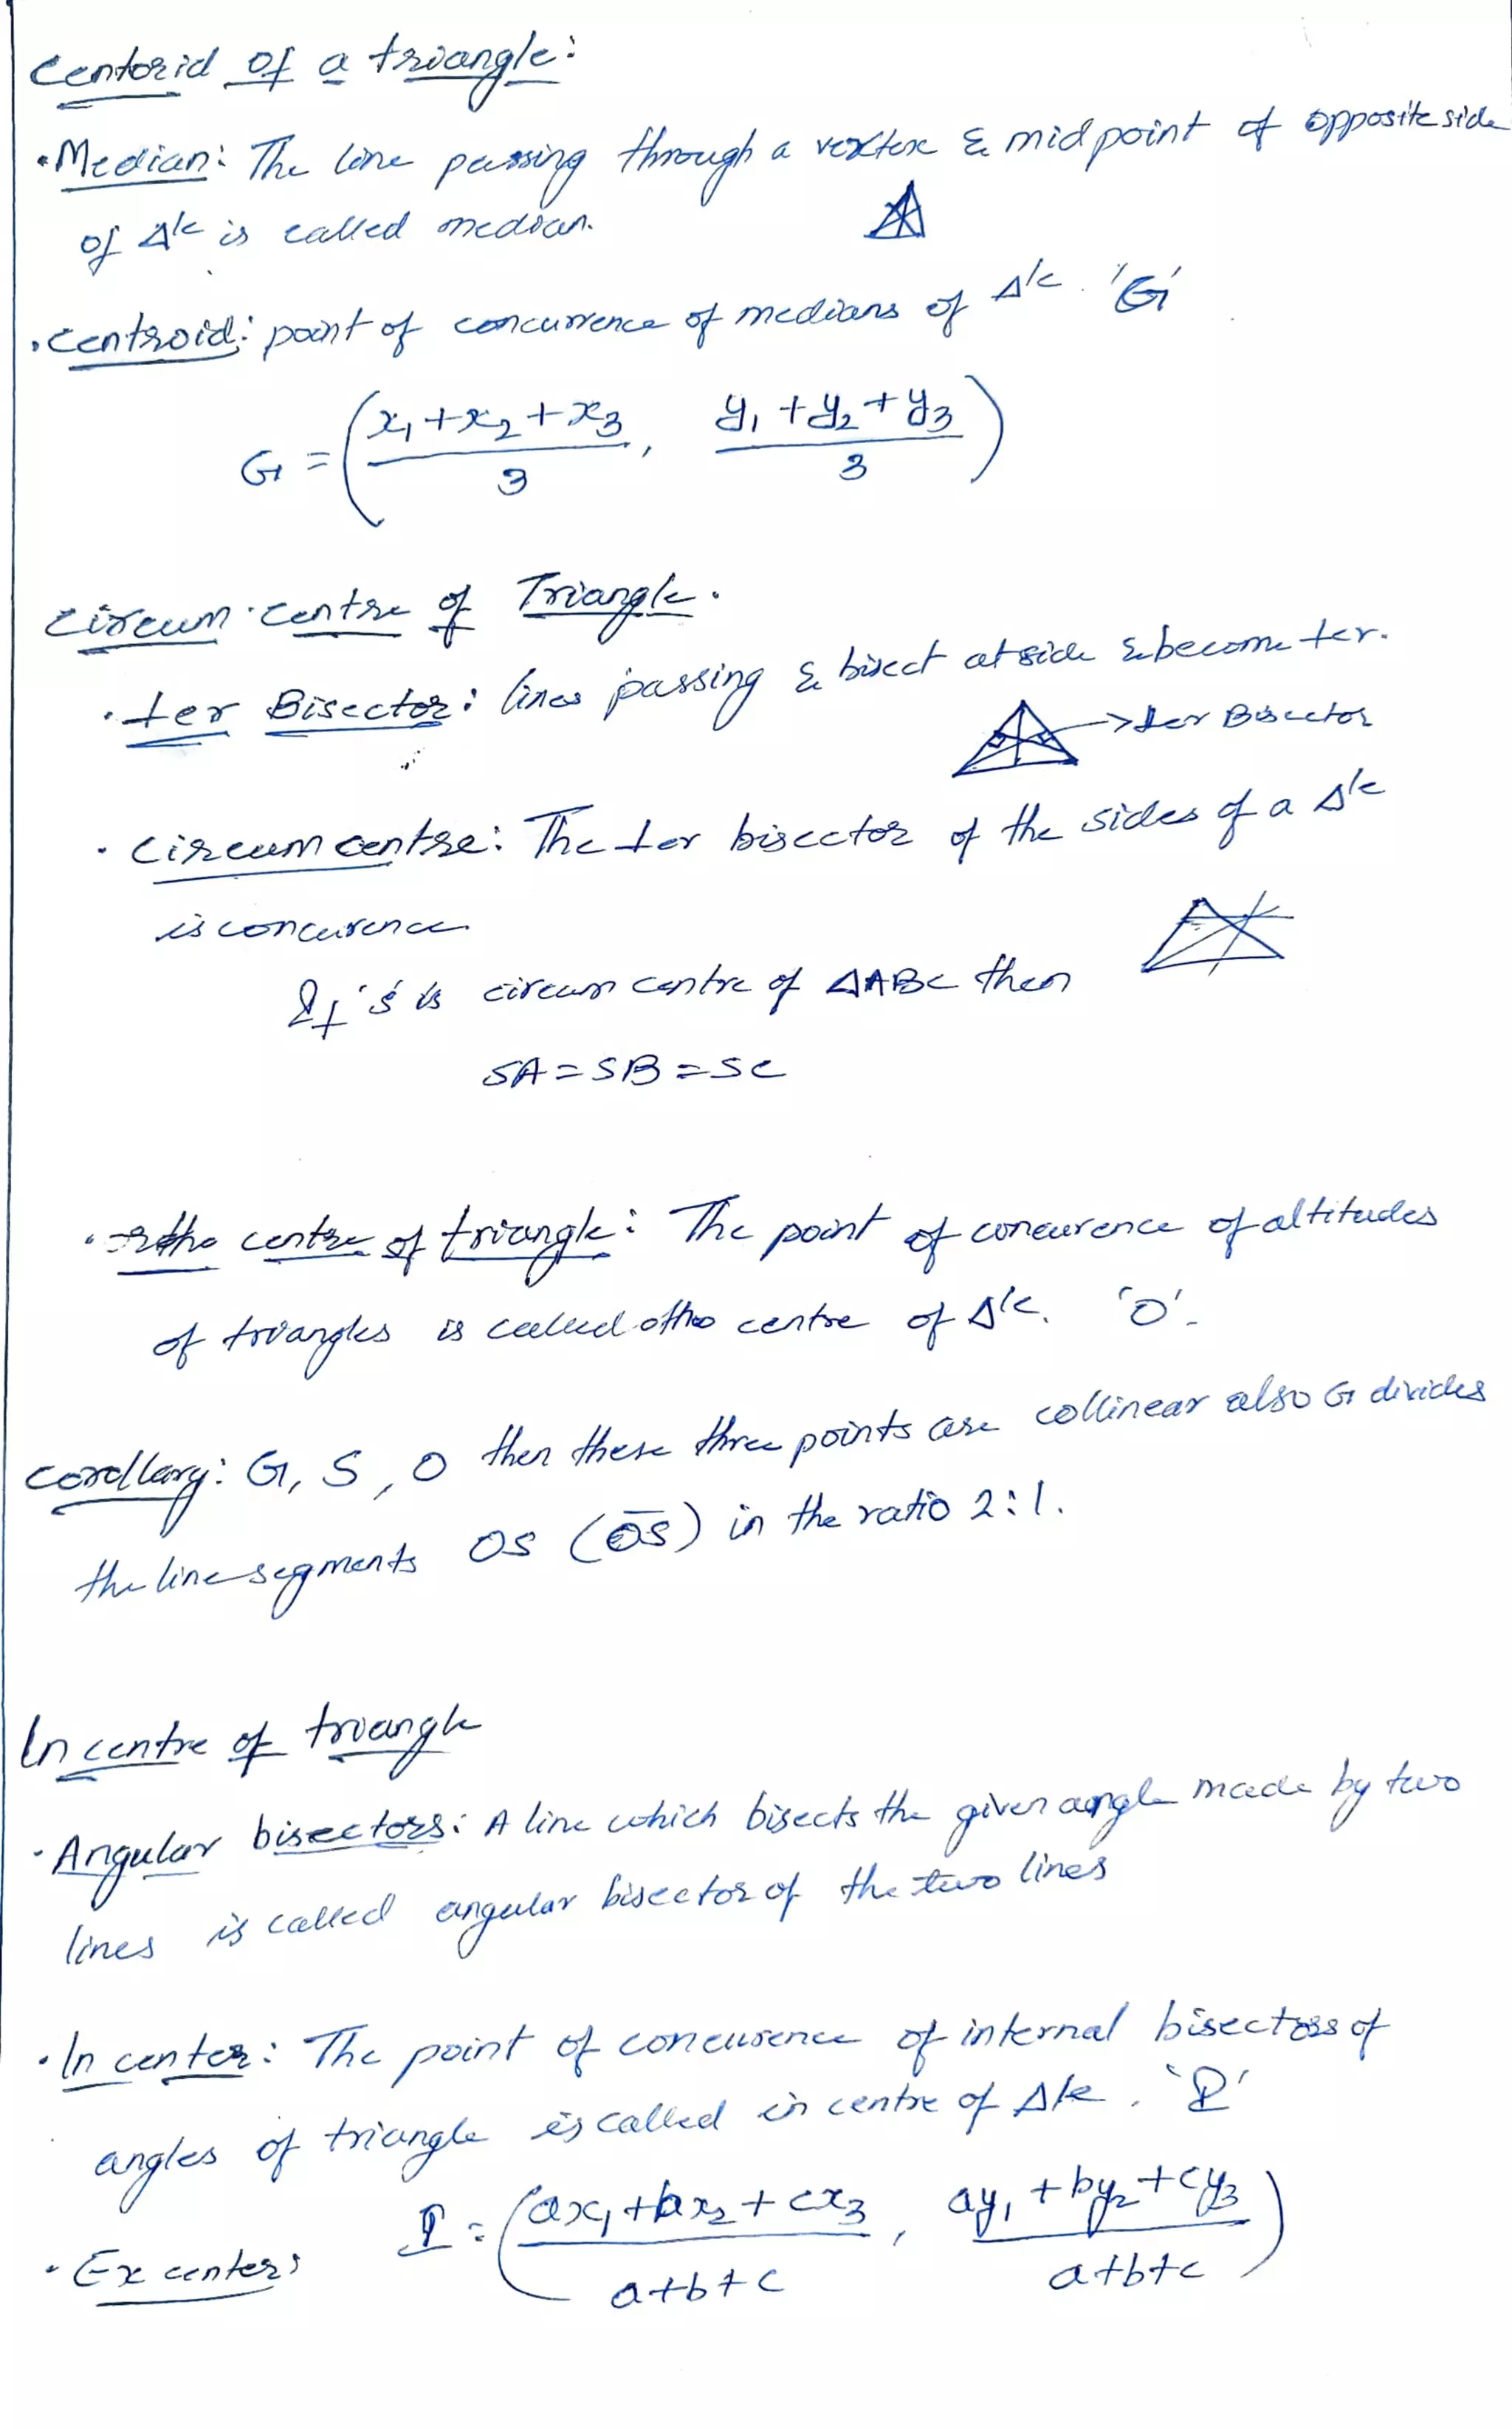 Centorid of a triangle:
• Median: The line passing through a vertex & midpoint of opposite side
of Δle is called median.
• Centroid: point of concurrence of medians of Δle. 'G'
G = (x₁+x₂+x₃/3, y₁+y₂+y₃/3)
Circum centre of Triangle.
• ⊥er Bisector: lines passing & bisect at side & become ⊥er.
→ ⊥er Bisector
• Circumcentre: The ⊥er bisector of the sides of a Δle
is concurence
If 's' is circum centre of ΔABC then
SA = SB = SC
• ortho centre of triangle: The point of concurence of altitudes
of triangles is called otho centre of Δle. 'O'.
Corollary: G, S, O then these three points are collinear also G divides
the line segments OS (OS̅) in the ratio 2:1.
In centre of triangle
• Angular bisectors: A line which bisects the given angle made by two
lines is called angular bisector of the two lines
• In center: The point of concurence of internal bisectors of
angles of triangle is called in centre of Δle. 'I'
I = (ax₁+bx₂+cx₃/a+b+c, ay₁+by₂+cy₃/a+b+c)
• Ex center: